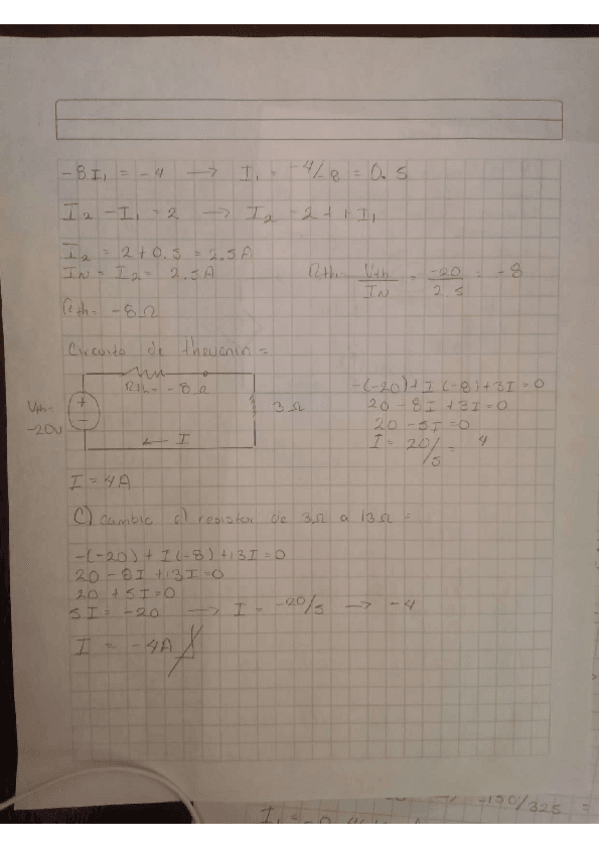 -8I₁ = -4 → I₁ = -4/-8 = 0.5
I₂ - I₁ = 2 → I₂ = 2 + 1I₁
I₂ = 2 + 0.5 = 2.5A
IN = I₂ = 2.5A
Rth = Vth/IN = -20/2.5 = -8
Rth = -8Ω
Circuito de thevenin =
Rth = -8Ω
Vth =
-20v
3Ω
← I
-(-20) + I(-8) + 3I = 0
20 - 8I + 3I = 0
20 - 5I = 0
I = 20/5 = 4
I = 4A
C) Cambie el resistor de 3Ω a 13Ω =
-(-20) + I(-8) + 13I = 0
20 - 8I + 13I = 0
20 + 5I = 0
5I = -20 → I = -20/5 → -4
I = -4A
-150/325 =